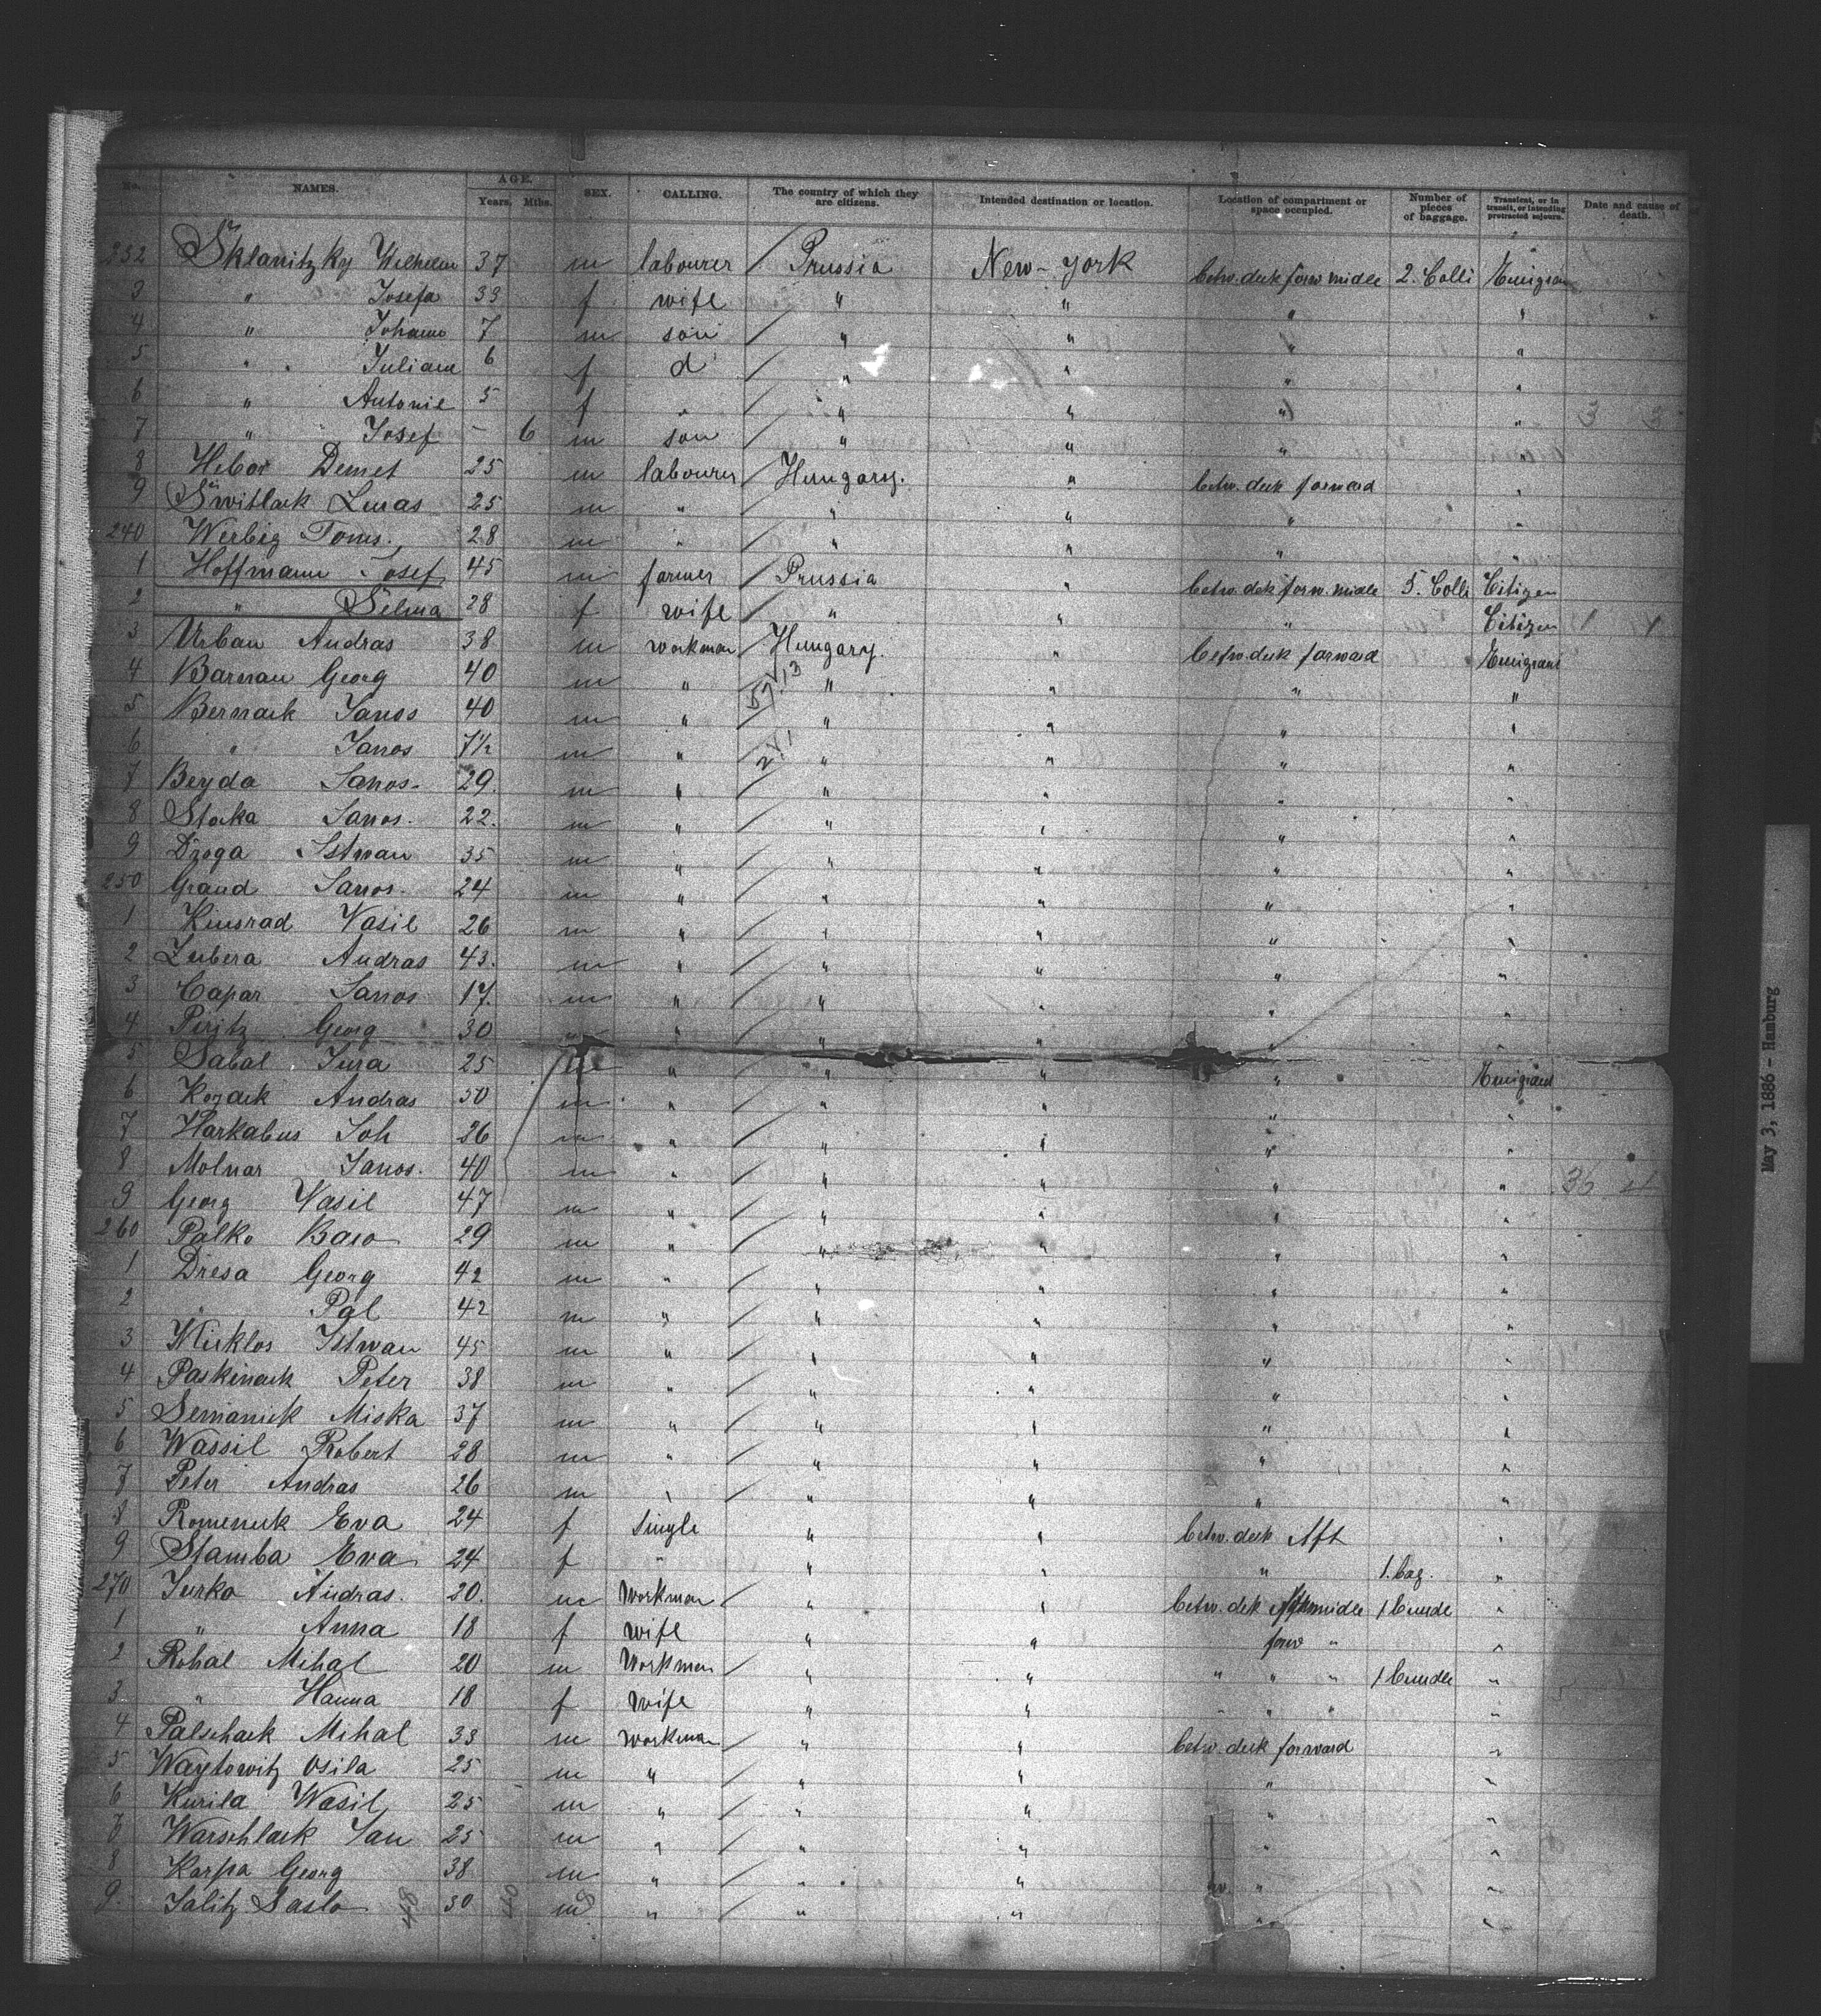 No. NAMES. AGE. Years. Mths. SEX. CALLING. The country of which they are citizens. Intended destination or location. Location of compartment or space occupied. Number of pieces of baggage. Transient, or in transit, or intending protracted sojourn. Date and cause of death.
232 Sklanitzky Wilhelm 37 m labourer Prussia New-York betw. deck forw midle 2. Colli Emigran
3 " Josefa 33 f wife " " " "
4 " Johann 7 m son " " " "
5 " Juliam 6 f d " " " "
6 " Antonie 5 f " " " " "
7 " Josef - 6 m son " " " "
8 Hebor Demet 25 m labourer Hungary. " betw. deck forward "
9 Switlack Lucas 25 m " " " " "
240 Werbig Toms. 28 m " " " " "
1 Hoffmann Josef 45 m farmer Prussia " betw. deck forw. midle 5. Colli Citizen
2 " Selma 28 f wife " " " Citizen 1 1
3 Urban Andras 38 m workman Hungary. " betw. deck forward Emigrant
4 Barnau Georg 40 m " " " " "
5 Bernack Janos 40 m " " " " "
6 " Janos 7½ m " " " " "
7 Beyda Janos. 29. m " " " " "
8 Stocka Janos. 22. m " " " " "
9 Dzoga Istwan 35 m " " " " "
250 Grand Janos. 24 m " " " " "
1 Kinsrad Vasil 26 m " " " " "
2 Zubera Andras 43. m " " " " "
3 Capar Janos 17. m " " " " "
4 Piritz Georg 30 m " " " " "
5 Sabal Jura 25 m " " " " Emigrant
6 Kozack Andras 50 m " " " " "
7 Harkabus Joh 26 m " " " " "
8 Molnar Janos. 40 m " " " " "
9 Georg Wasil 47 m " " " " "
260 Palko Baso 29 m " " " " "
1 Dresa Georg 42 m " " " " "
2 " Pal 42 m " " " " "
3 Micklos Istwan 45 m " " " " "
4 Paskinack Peter 38 m " " " " "
5 Semanick Miska 37 m " " " " "
6 Wassil Robert 28 m " " " " "
7 Peter Andras 26 m " " " " "
8 Romeneck Eva 24 f single " " betw. deck Aft "
9 Stamba Eva 24 f " " " " 1. bag. "
270 Jurko Andras. 20. m Workman " " betw. deck midle 1 bundle "
1 " Anna 18 f wife " " forw " "
2 Rohal Mihal 20 m Workman " " " " " 1 bundle "
3 " Hanna 18 f wife " " " " " "
4 Palschack Mihal 33 m workman " " betw. deck forward "
5 Waytowitz Osila 25 m " " " " "
6 Kurila Wasil 25 m " " " " "
7 Warschlack Jan 25 m " " " " "
8 Karpa Georg 38 m " " " " "
9. Jalitz Saslo 30 m " " " " "
48
May 3, 1886 - Hamburg